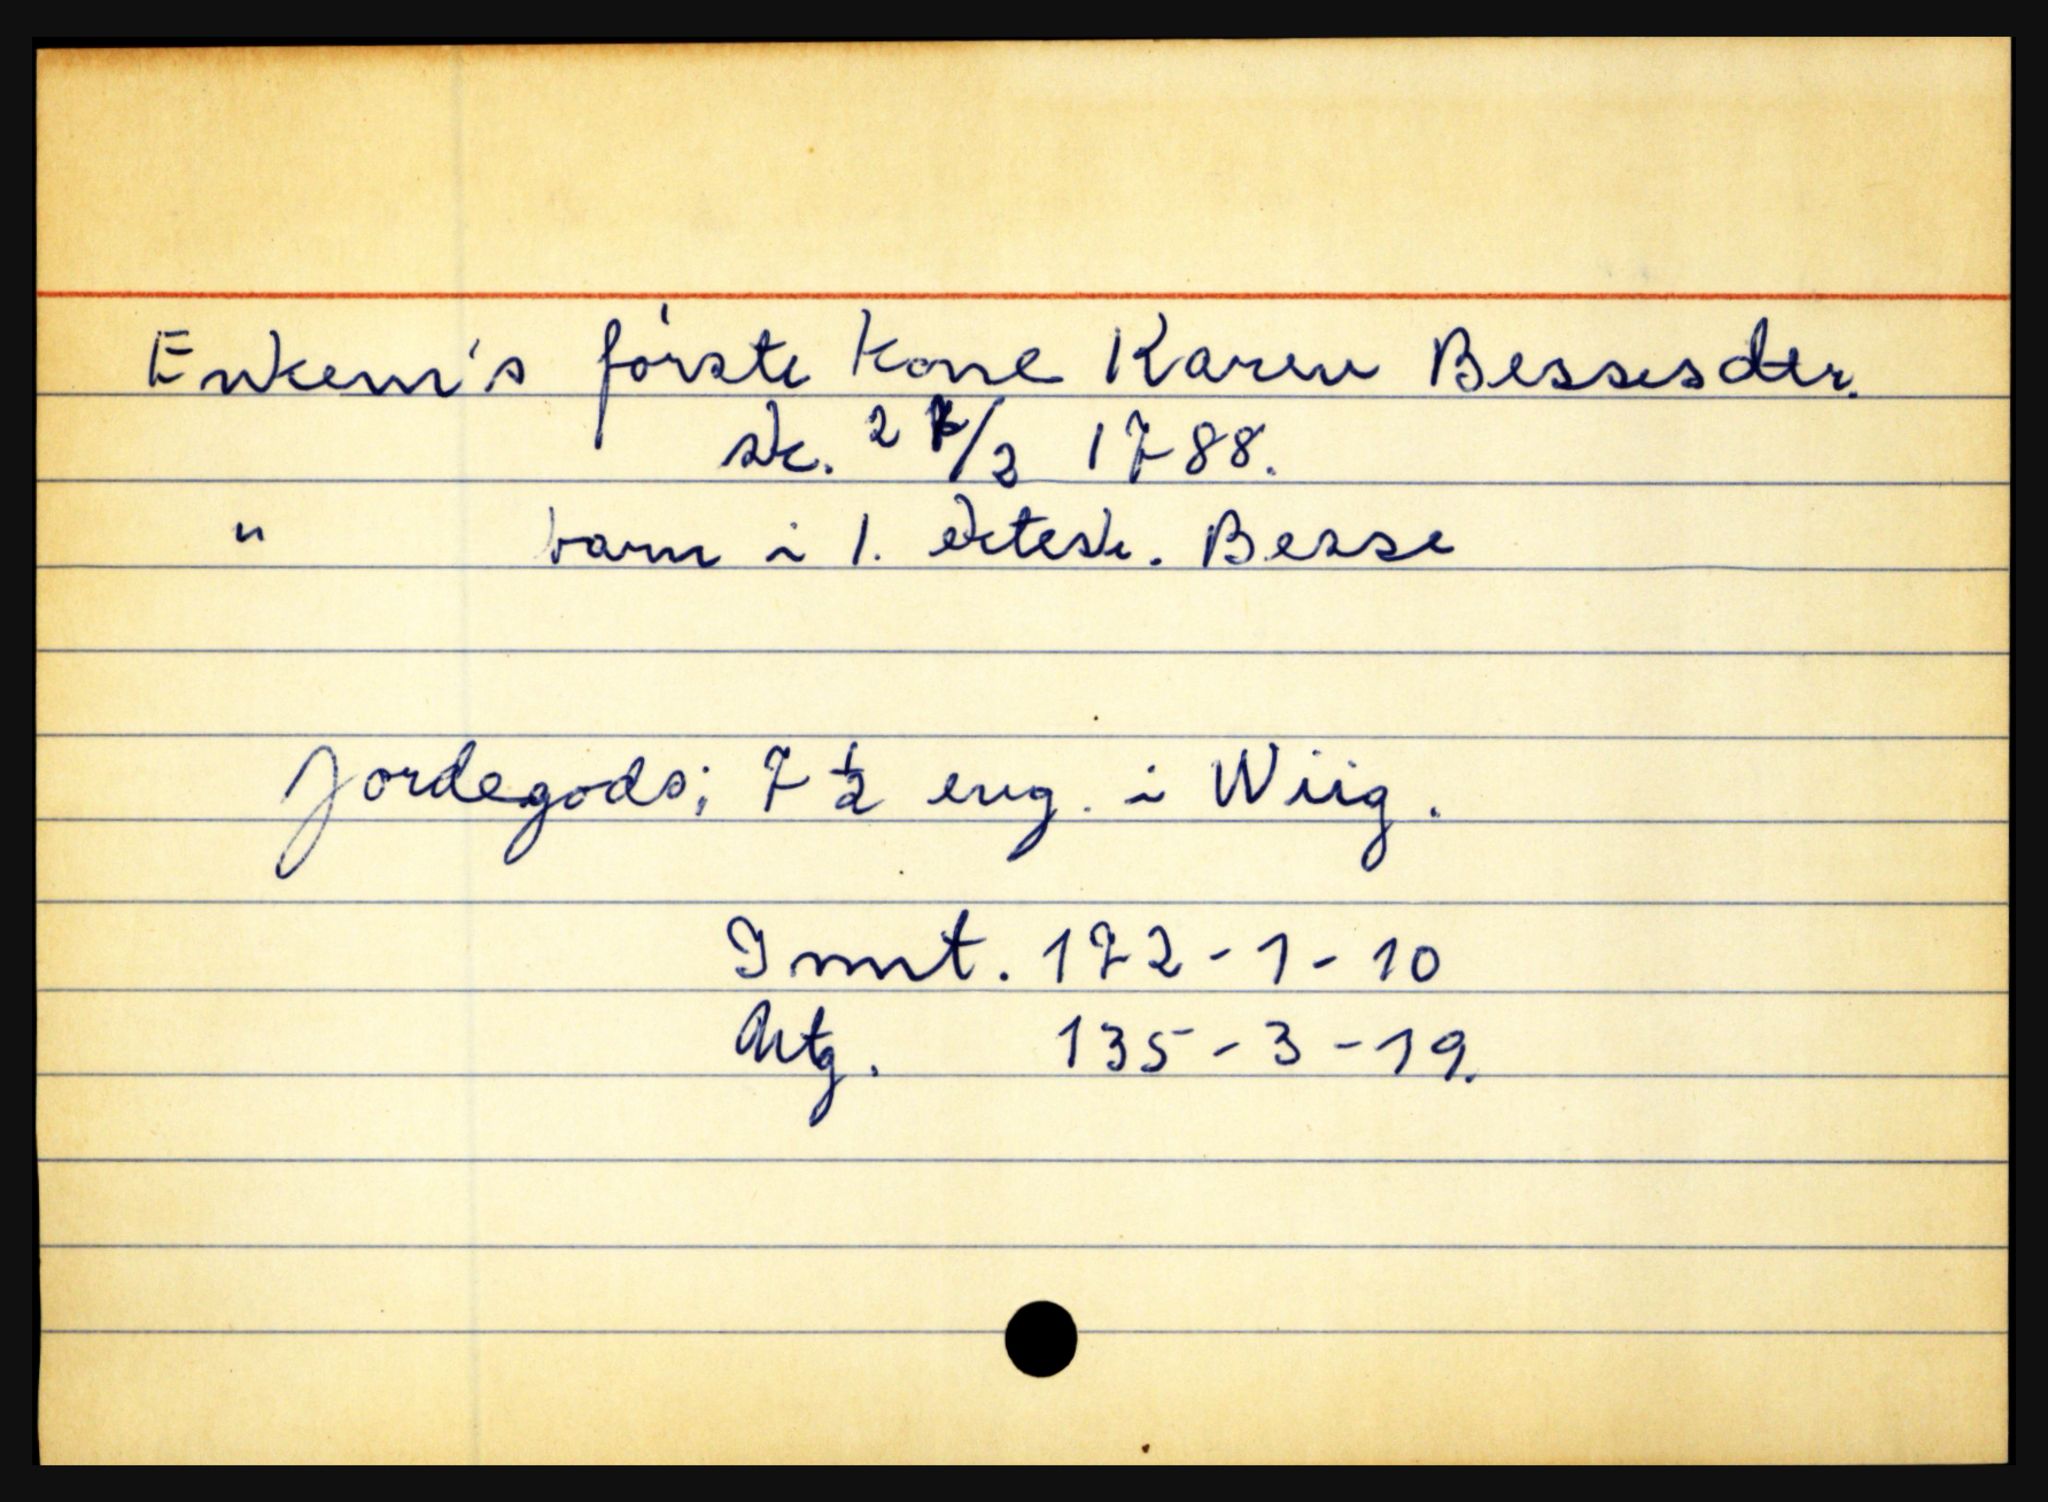 Enkem's første kone Karen Bessesdtr.
sk. 27/2 1788.
" barn i 1. ektesk. Besse
Jordegods; 7 1/2 eng. i Wiig.
Innt. 172-1-10
Utg. 135-3-19.